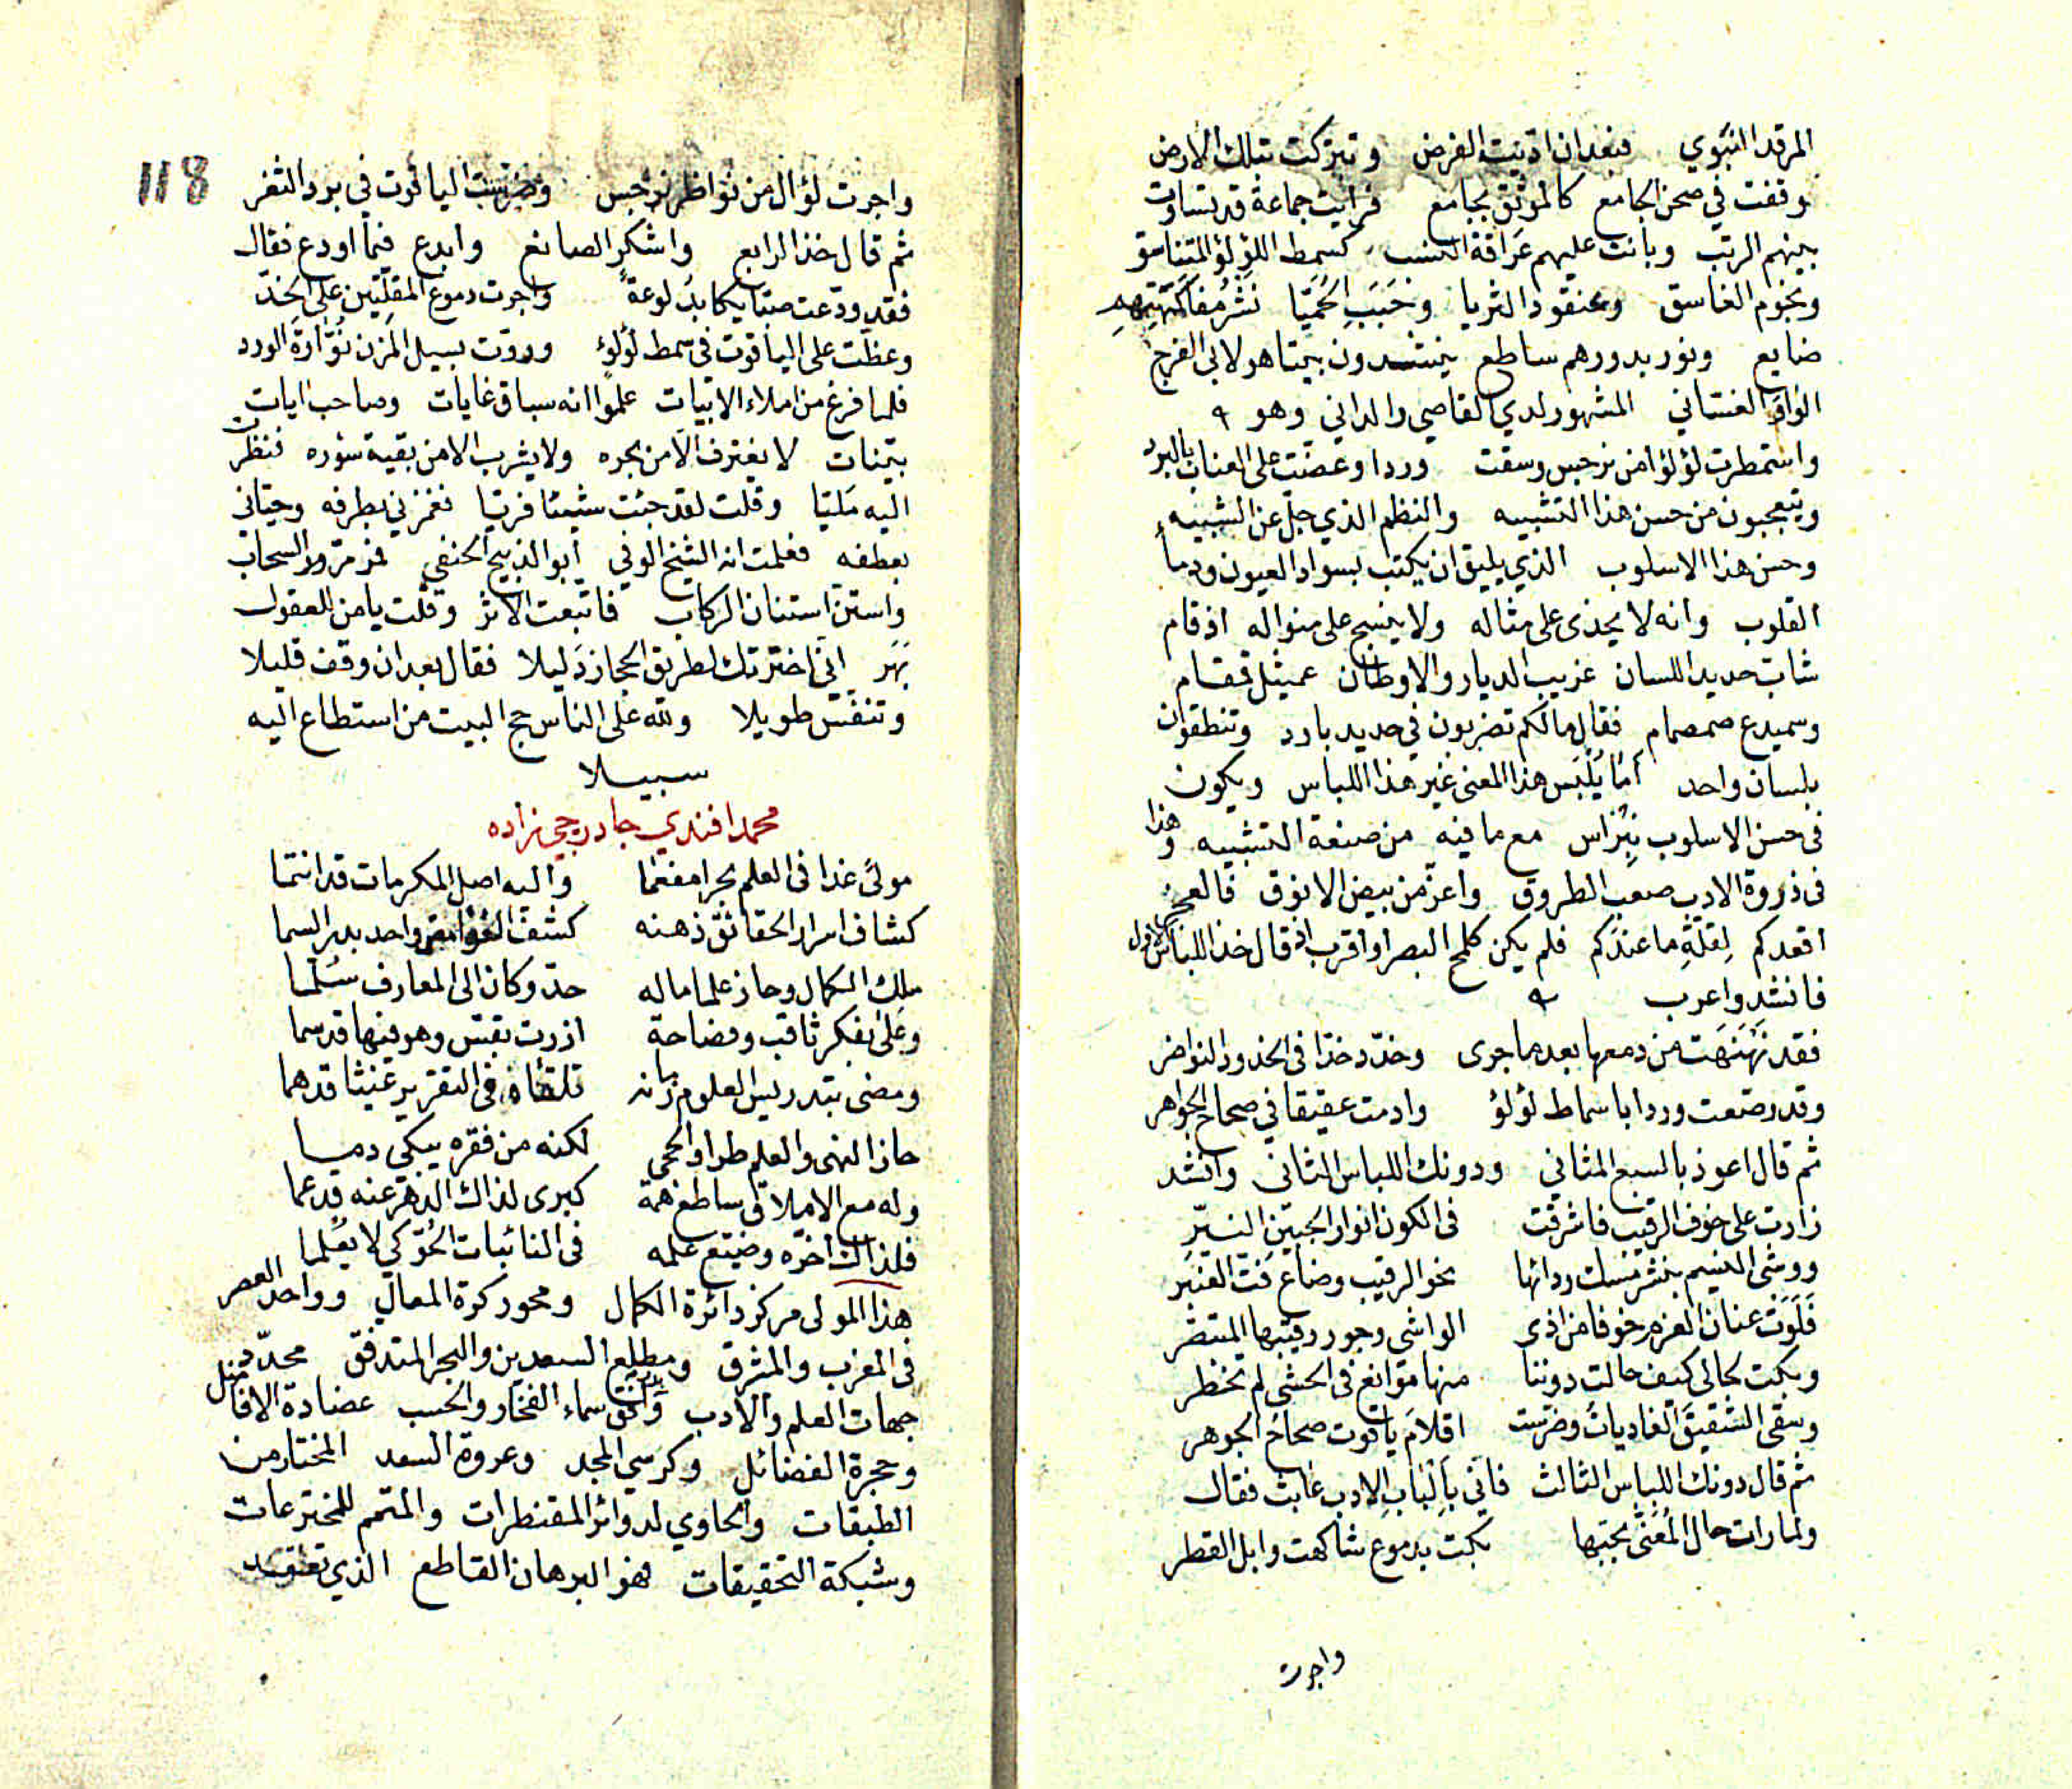 المرقد النبوي فبعد ان اديت الفرض وتبركت بتلك الارض
وقفت في صحن الجامع كالموثق بجامع فرايت جماعة قد تساوت
بينهم الرتب وبانت عليهم عراقة النسب كسمط اللؤلؤ المتناسق
ونجوم الغاسق وعنقود الثريا وحبب الحميا نشر مفاكهتهم
ضايع ونور بدورهم ساطع ينشدون بيتا هو لابي الفرج
الواوا الغساني المشهور لدي القاصي والداني وهو
واستمطرت لؤلؤا من نرجس وسقت وردا وعضت على العناب بالبرد
ويتعجبون من حسن هذا التشبيه والنظم الذي جل عن الشبيه
وحسن هذا الاسلوب الذي يليق ان يكتب بسواد العيون ودماء
القلوب وانه لا يحذى على مثاله ولا ينسج على منواله اذ قام
شاب حديد اللسان غريب الديار والاوطان عميثل قمقام
وسميدع صمصام فقال مالكم تضربون في حديد بارد وتنطقون
بلسان واحد أما يلبس هذا المعنى غير هذا اللباس ويكون
في حسن الاسلوب نبراس مع ما فيه من صنعة التشبيه وهذا
في ذروة الادب صعب الطروق واعز من بيض الانوق فالعجز
اقعدكم لقلة ما عندكم فلم يكن كلمح البصر او اقرب اذ قال خذ اللباس الاول
فانشد واعرب
فقد نهنهت من دمعها بعدما جرى وخدد خدا في الخدود النواضر
وقد رصعت وردا باسماط لؤلؤ وادمت عقيقا في صحاح الجواهر
ثم قال اعوذ بالسبع المثاني ودونك اللباس الثاني وانشد
زارت على خوف الرقيب فاشرقت في الكون انوار الجبين النير
ووشى النسيم بنشر مسك ردائها نحو الرقيب وضاع فت العنبر
فلوت عنان العزم خوفا من اذى الواشي وجور رقيبها المتنضر
وبكت لحالي كيف حالت دوننا منها موانع في الحشى لم تخطر
وسقى الشقيق الغاديات وضرست اقلام ياقوت صحاح الجوهر
ثم قال دونك اللباس الثالث فاني بالباب الادب عابث فقال
ولما رات حال المعنى بحبها بكت بدموع شاكهت وابل القطر
واجرت
118
واجرت لؤالا من نواظر نرجس وضرست الياقوت في برد الثغر
ثم قال خذ الرابع واشكر الصانع وابدع فيما اودع فقال
فقد ودعت صبا يكابد لوعة واجرت دموع المقلتين على الخد
وعظت على الياقوت في سمط لؤلؤ وروت بسيل المزن نوارة الورد
فلما فرغ من املاء الابيات علموا انه سباق غايات وصاحب ايات
بينات لا يغترف الا من بحره ولا يشرب الا من بقية سؤره فنظرت
اليه مليا وقلت لقد جئت شيئا فريا فغمزني بطرفه وحياني
بعطفه فعلمت انه الشيخ الوفي أبو الذبيح الحنفي فمر مرور السحاب
واستن استنان الركاب فاتبعت الاثر وقلت يا من للعقول
بهر اني اخترتك لطريق الحجاز دليلا فقال بعد ان وقف قليلا
وتنفس طويلا ولله على الناس حج البيت من استطاع اليه
سبيلا
محمد افندي جادرجي زاده
مولى غدا في العلم بحرا مفعما واليه اصل المكرمات قد انتما
كشاف اسرار الحقائق ذهنه كشف الغوامض واحد بدر السما
ملك الكمال وحاز علما ماله حد وكان الى المعارف سلما
وعلى بفكر ثاقب وفصاحة ازرت بقس وهو فيها قد سما
ومضى بتدريس العلوم زمانه تلقاه في التقرير غيثا قد هما
حاز النهى والعلم طرا والحجى لكنه من فقره يبكي دما
وله مع الاملاق ساطع همة كبرى لذاك الدهر عنه قد عما
فلذاك اخره وضيع علمه في النائبات الحو كي لا يعلما
هذا المولى مركز دائرة الكمال ومحور كرة المعالي وواحد العصر
في المغرب والمشرق ومطلع السعدين والبحر المتدفق محدد
جهات العلم والادب وافق سماء الفخار والحسب عضادة الافاضل
وحجرة الفضائل وكرسي المجد وعروة السعد المختار من
الطبقات والحاوي لدوائر المقنطرات والمتمم للمخترعات
وشبكة التحقيقات فهو البرهان القاطع الذي